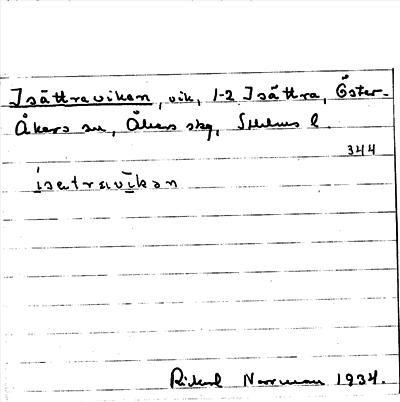 Isättraviken, vik, 1-2 Isättra, Öster-
Åkers sn, Åkers skg, Sthlms l.
344
isætraviken
Rikard Norrman 1934.